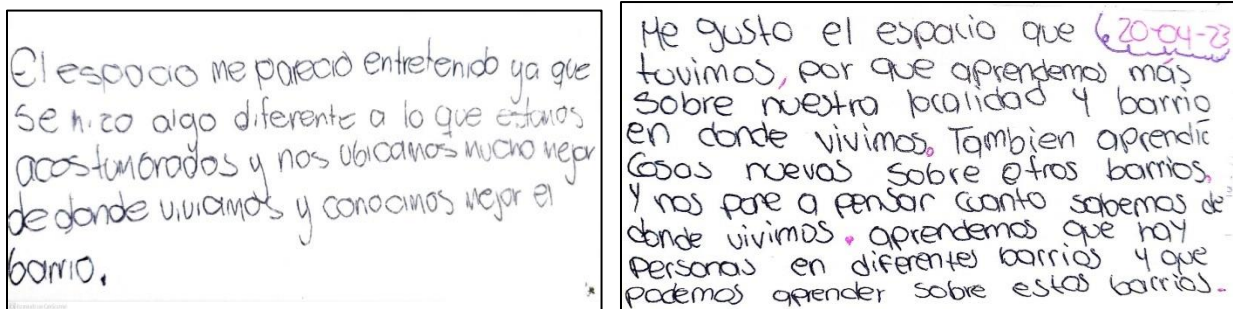 El espacio me pareció entretenido ya que
se hizo algo diferente a lo que estamos
acostumbrados y nos ubicamos mucho mejor
de donde viviamos y conocimos mejor el
barrio.
Me gusto el espacio que 20-04-23
tuvimos, por que aprendemos más
sobre nuestra localidad y barrio
en donde vivimos. Tambien aprendí
cosas nuevas sobre otros barrios,
Y nos pone a pensar cuanto sabemos de
donde vivimos. aprendemos que hay
personas en diferentes barrios y que
podemos aprender sobre estos barrios.